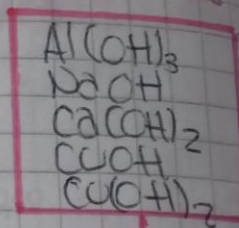 Al(OH)3
NaOH
Ca(OH)2
CuOH
Cu(OH)2